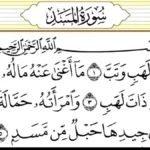 سُورَةُ المَسَدِ
ٱللَّهِ ٱلرَّحْمَٰنِ ٱلرَّحِيمِ
لَهَبٍ وَتَبَّ ١ مَآ أَغْنَىٰ عَنْهُ مَالُهُۥ
ذَاتَ لَهَبٍ ٣ وَٱمْرَأَتُهُۥ حَمَّالَةَ
جِيدِهَا حَبْلٌ مِّن مَّسَدٍ